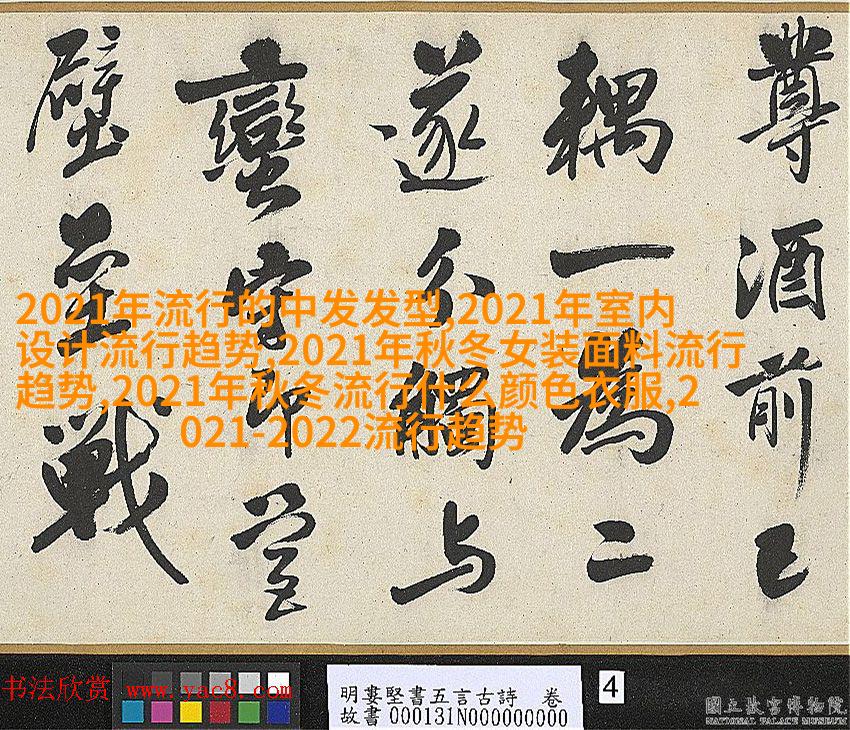 尊酒前已
耦一為二
遂分觸与
蠻營
壁壘戰
2021年流行的中发发型,2021年室内
设计流行趋势,2021年秋冬女装面料流行
趋势,2021年秋冬流行什么颜色衣服,2
021-2022流行趋势
书法欣赏 www.yac8.com
明婁堅書五言古詩 卷
故書000131N000000000
4
國立故宮博物院
NATIONAL PALACE MUSEUM